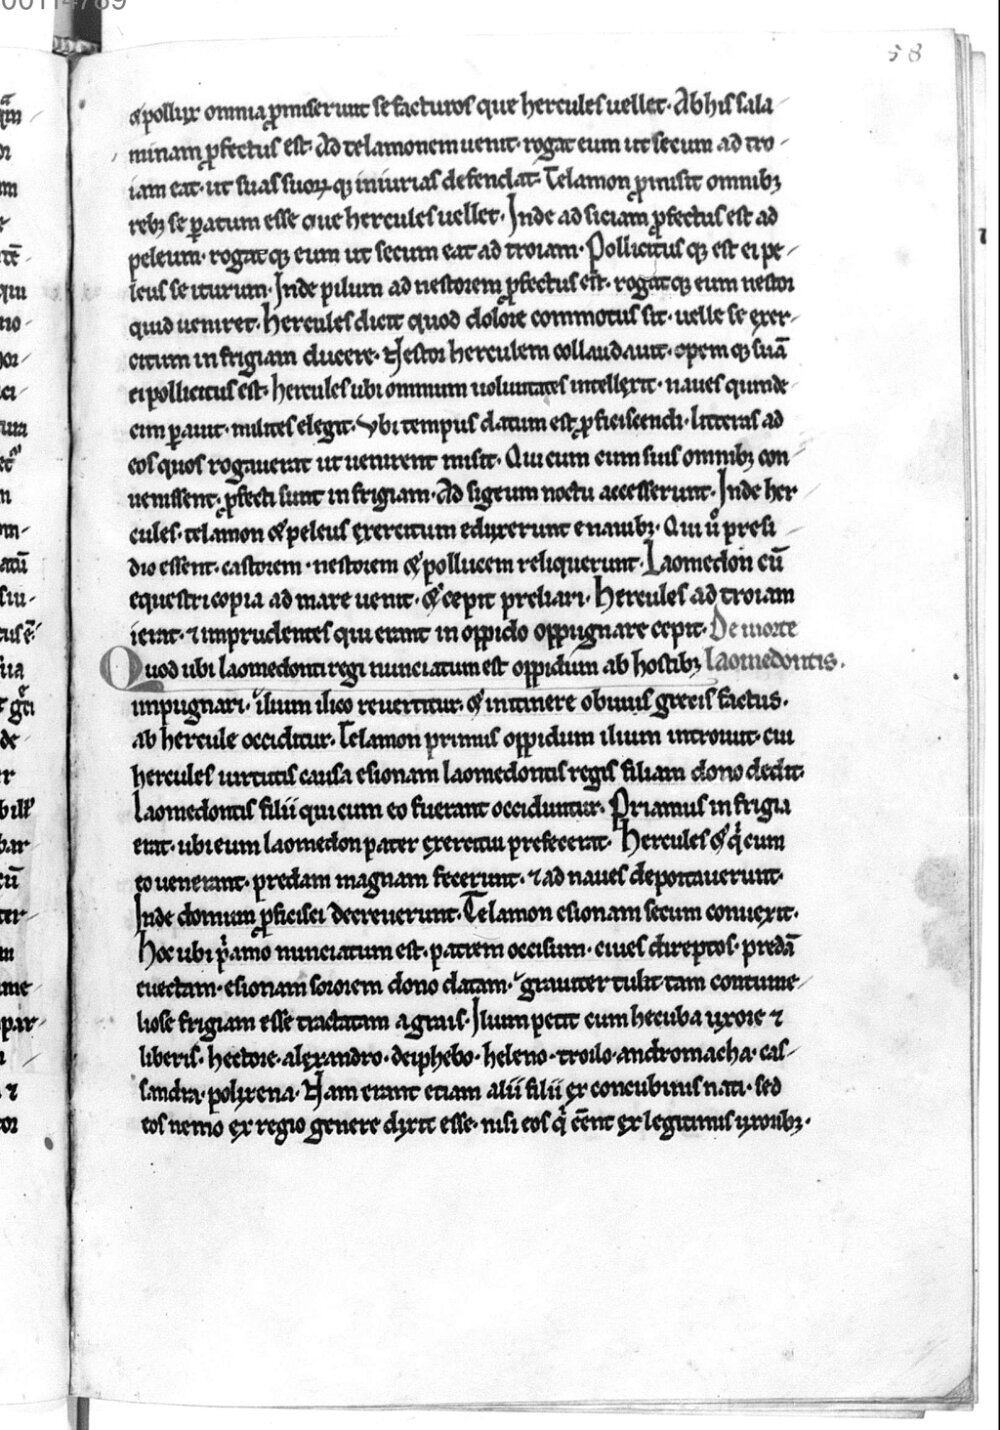 58
& pollux omnia ꝓmiserunt se facturos que hercules uellet. Ab his sala-
minam ꝓfectus est. Ad telamonem uenit. rogat eum ut secum ad tro-
iam eat. ut suas suoꝝ qꝫ iniurias defendat. Telamon ꝓmisit omnibꝫ
rebꝫ se ꝑatum esse que hercules uellet. Inde ad siciam ꝓfectus est ad
peleum. rogatqꝫ eum ut secum eat ad troiam. Pollicitus qꝫ est ei pe-
leus se iturum. Inde pilum ad nestorem ꝓfectus est. rogatqꝫ eum nestor
quid ueniret. hercules dicit quod dolore commotus sit. uelle se exer-
citum in frigiam ducere. Nestor herculem collaudauit. opem qꝫ suā
ei pollicitus est. hercules ubi omnium uoluntates intellexit. naues quinde-
cim ꝑauit. milites elegit. Vbi tempus datum est ꝓficiscendi. litteras ad
eos quos rogauerat ut uenirent misit. Qui cum cum suis omnibꝫ con-
uenissent. ꝓfecti sunt in frigiam. Ad sigeum noctu accesserunt. Inde her-
cules. telamon & peleus exercitum eduxerunt e nauibꝫ. Qui uͦ presi-
dio essent. castorem. nestorem & pollucem reliquerunt. Laomedon cū
equestri copia ad mare uenit. & cepit preliari. Hercules ad troiam
ierat. ⁊ imprudentes qui erant in oppido oppugnare cepit. De morte
Quod ubi laomedonti regi nunciatum est oppidum ab hostibꝫ laomedontis.
impugnari. ilium ilico reuertitur. & in itinere obuius grecis factus.
ab hercule occiditur. Telamon primus oppidum ilium introiuit. cui
hercules uirtutis causa esionam laomedontis regis filiam dono dedit.
Laomedontis filii qui cum eo fuerant occiduntur. Priamus in frigia
erat. ubi eum laomedon pater exercitui prefecerat. Hercules & qͥ cum
eo uenerant. predam magnam fecerunt. ⁊ ad naues deportauerunt.
Inde domum ꝓficisci decreuerunt. Telamon esionam secum conuexit.
Hoc ubi pͥamo nunciatum est. patrem occisum. ciues direptos. predā
euectam. esionam sororem dono datam. grauiter tulit tam contume-
liose frigiam esse tractatam a grais. Ilium petit cum hecuba uxore ⁊
liberis. hectore. alexandro. deiphebo. heleno. troilo. andromacha. cas-
sandra. polixena. Nam erant etiam alii filii ex concubinis nati. sed
eos nemo ex regio genere dixit esse. nisi eos qͥ eēnt ex legitimis uxoribꝫ.